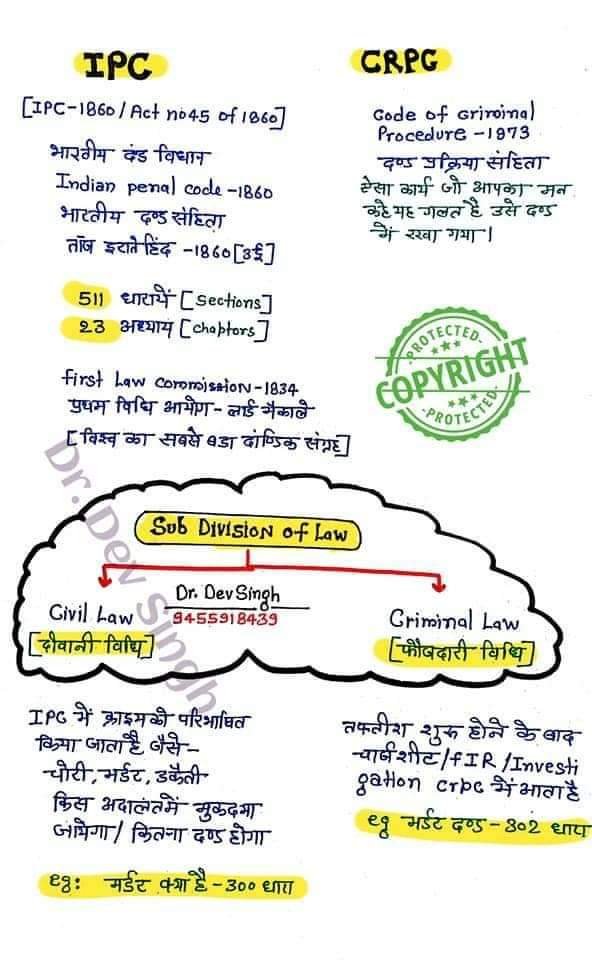 IPC
[IPC-1860/Act no 45 of 1860]
भारतीय दंड विधान
Indian penal code -1860
भारतीय दण्ड संहिता
ताॅज इराते हिंद -1860 [उर्दू]
511 धारायें [sections]
23 अध्याय [chaptors]
first Law commission-1834
प्रथम विधि आयोग - लार्ड मैकाले
[विश्व का सबसे बडा दाण्डिक संग्रह]
CRPG
Code of Griminal
Procedure -1973
दण्ड प्रक्रिया संहिता
ऐसा कार्य जो आपका मन
कहे यह गलत है उसे दण्ड
में रखा गया।
PROTECTED
COPYRIGHT
PROTECTED
Dr. Dev Singh
Sub Division of Law
Dr. Dev Singh
9455918439
Civil Law
[दीवानी विधि]
Criminal Law
[फौजदारी विधि]
IPG में क्राइम को परिभाषित
किया जाता है जैसे-
चोरी, मर्डर, डकैती
किस अदालत में मुकदमा
जायेगा/ कितना दण्ड होगा
eg: मर्डर क्या है - 300 धारा
तफ्तीश शुरू होने के बाद
चार्जशीट/fIR/Investi
gation crpc में आता है
eg मर्डर दण्ड - 302 धारा